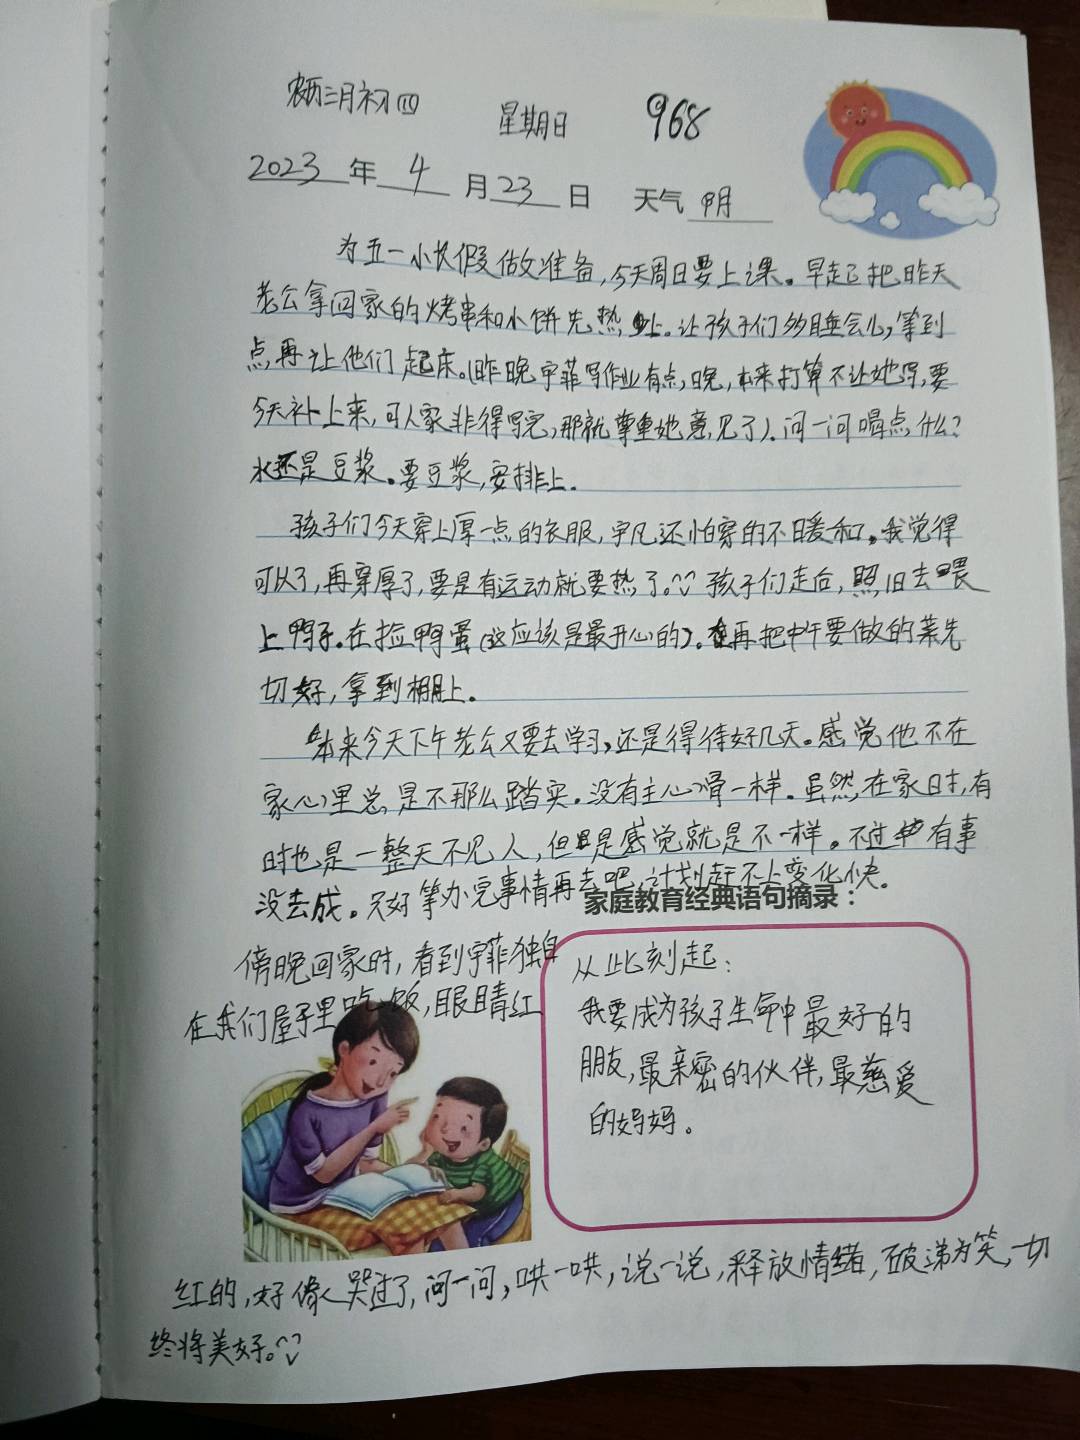 农历三月初四 星期日 968
2023年4月23日 天气 明
为五一小长假做准备,今天周日要上课。早起把昨天
老公拿回家的烤串和小饼先热上。让孩子们多睡会儿,等到
点再让他们起床。(昨晚宇菲写作业有点晚,本来打算不让她写,要
今天补上来,可人家非得写完,那就尊重她意见了)。问一问喝点什么?
水还是豆浆。要豆浆,安排上。
孩子们今天穿上厚一点的衣服,宇凡还怕穿的不暖和。我觉得
可以了,再穿厚了,要是有运动就要热了。孩子们走后,照旧去喂
上鸭子。在捡鸭蛋(这应该是最开心的)。再把中午要做的菜先
切好,拿到棚上。
本来今天下午老公又要去学习,还是得待好几天。感觉他不在
家心里总是不那么踏实。没有主心骨一样。虽然,在家时,有
时也是一整天不见人,但是感觉就是不一样。不过有事
没去成。只好等办完事情再去吧,计划赶不上变化快。
家庭教育经典语句摘录:
傍晚回家时,看到宇菲独自
在我们屋子里吃饭,眼睛红
从此刻起:
我要成为孩子生命中最好的
朋友,最亲密的伙伴,最慈爱
的妈妈。
红的,好像哭过了,问一问,哄一哄,说一说,释放情绪,破涕为笑,一切
终将美好。